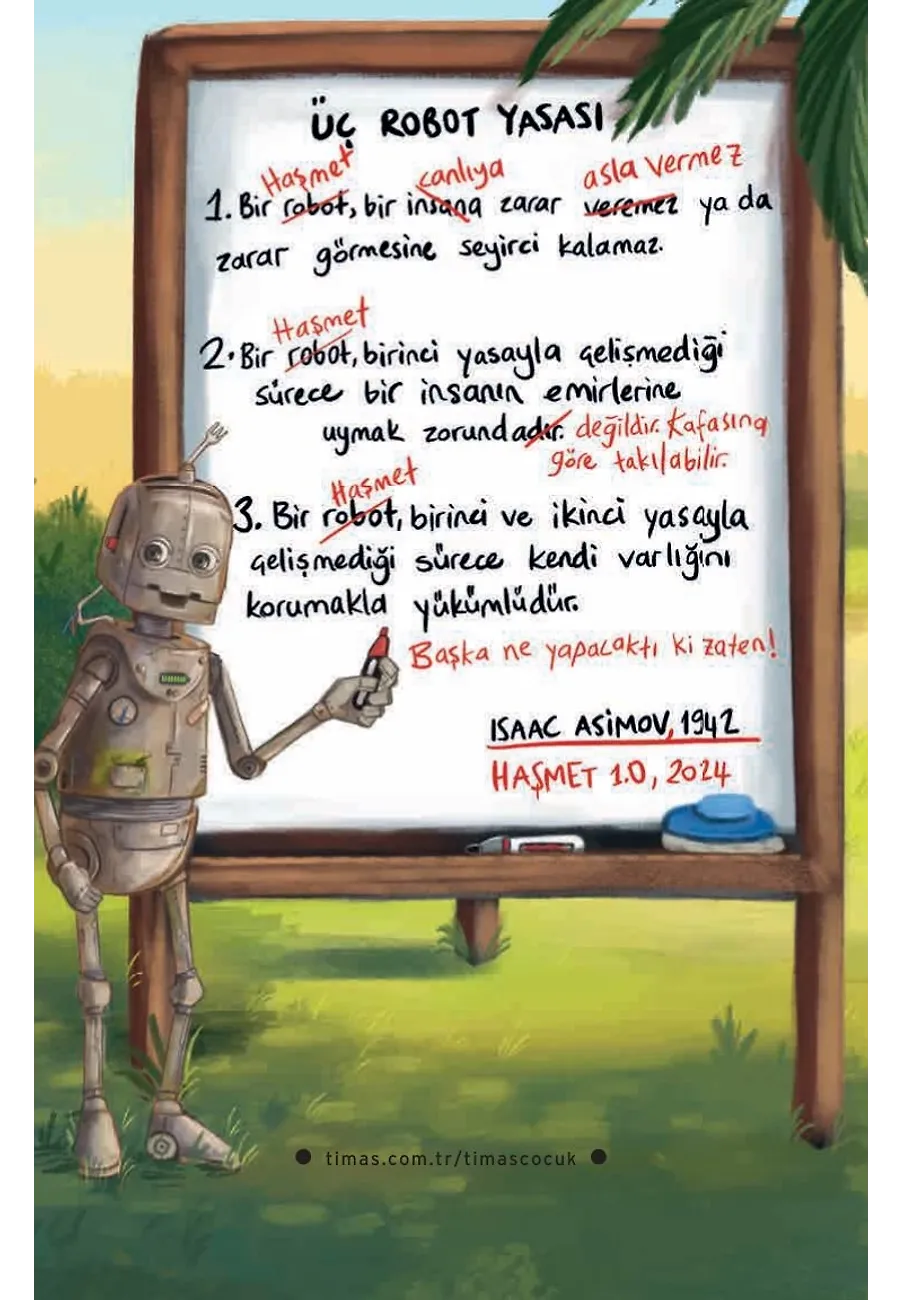 ÜÇ ROBOT YASASI
Haşmet canlıya asla vermez
1. Bir robot, bir insana zarar veremez ya da
zarar görmesine seyirci kalamaz.
Haşmet
2. Bir robot, birinci yasayla çelişmediği
sürece bir insanın emirlerine
uymak zorundadır. değildir. Kafasına
göre takılabilir.
Haşmet
3. Bir robot, birinci ve ikinci yasayla
çelişmediği sürece kendi varlığını
korumakla yükümlüdür.
Başka ne yapacaktı ki zaten!
ISAAC ASİMOV, 1942
HAŞMET 1.0, 2024
timas.com.tr/timascocuk